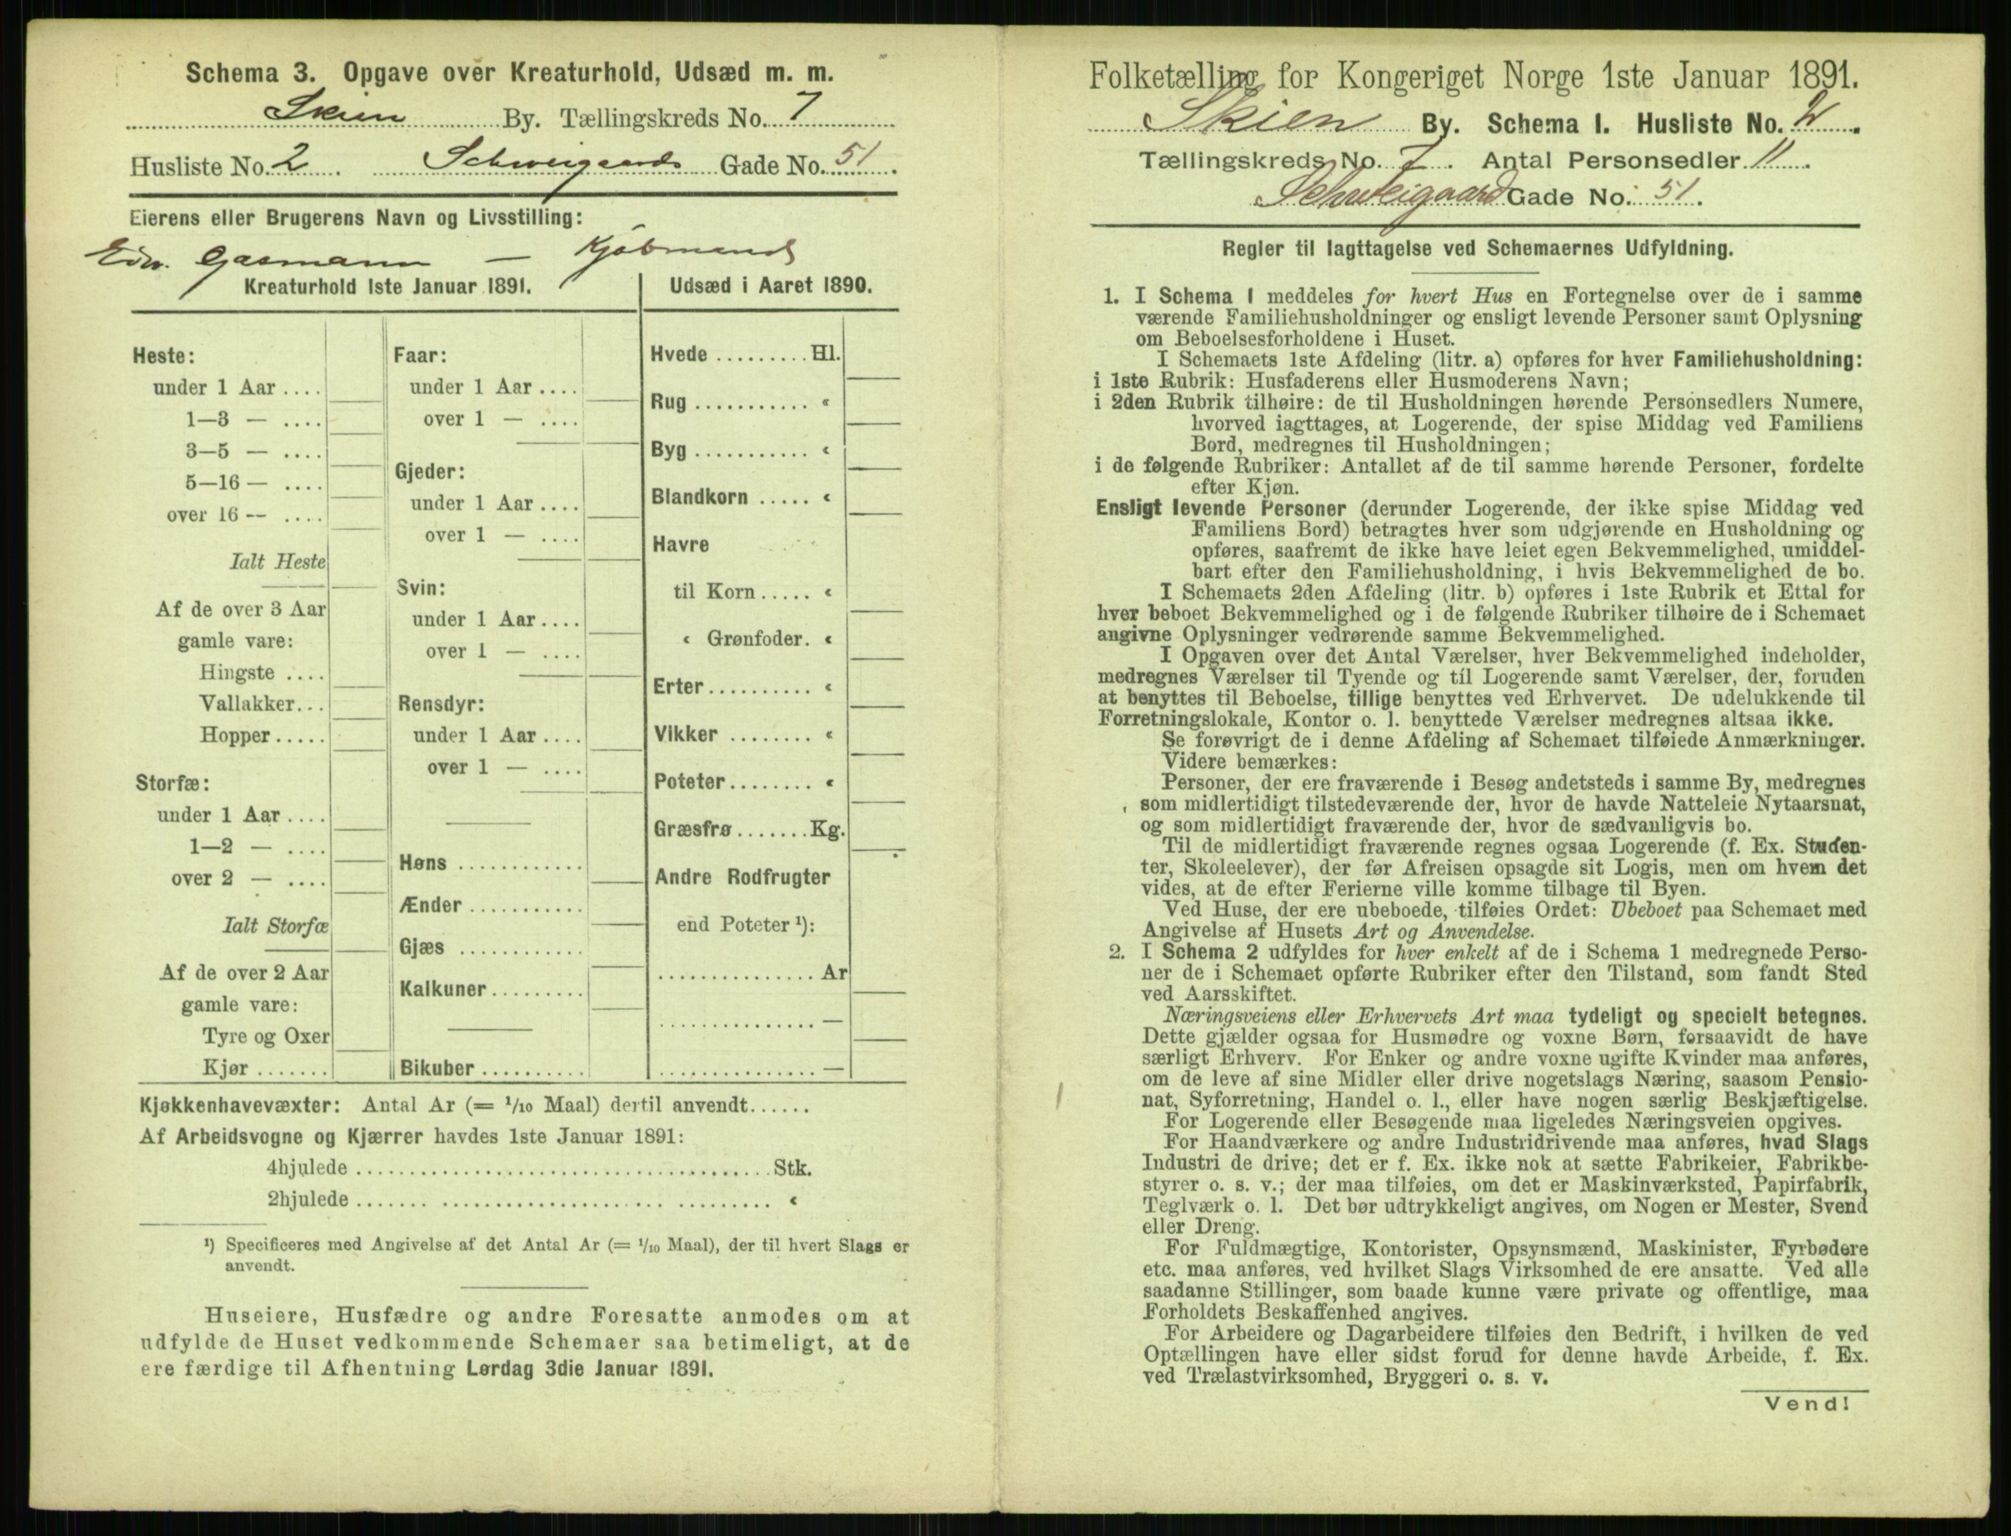 Schema 3. Opgave over Kreaturhold, Udsæd m. m.
Skien By. Tællingskreds No. 7
Husliste No. 2. Schweigaards Gade No. 51.
Eierens eller Brugerens Navn og Livsstilling:
Edv. Gasmann — Kjøbmand
Kreaturhold 1ste Januar 1891.
Heste:
under 1 Aar ....
1—3 — ....
3—5 — ....
5—16 — ....
over 16 — ....
Ialt Heste
Af de over 3 Aar
gamle vare:
Hingste ....
Vallakker...
Hopper .....
Storfæ:
under 1 Aar ....
1—2 — ....
over 2 — ....
Ialt Storfæ
Af de over 2 Aar
gamle vare:
Tyre og Oxer
Kjør .......
Faar:
under 1 Aar ....
over 1 — ....
Gjeder:
under 1 Aar ....
over 1 — ....
Svin:
under 1 Aar ....
over 1 — ....
Rensdyr:
under 1 Aar ....
over 1 — ....
Høns ............
Ænder ...........
Gjæs ............
Kalkuner.........
Bikuber ..........
Udsæd i Aaret 1890.
Hvede .........Hl.
Rug ........... «
Byg ........... «
Blandkorn ..... «
Havre
til Korn ..... «
« Grønfoder. «
Erter.......... «
Vikker ........ «
Poteter........ «
Græsfrø .......Kg.
Andre Rodfrugter
end Poteter ¹):
............... Ar
............... —
............... —
Kjøkkenhavevæxter: Antal Ar (= 1/10 Maal) dertil anvendt......
Af Arbeidsvogne og Kjærrer havdes 1ste Januar 1891:
4hjulede ........................................Stk.
2hjulede ....... .................... «
¹) Specificeres med Angivelse af det Antal Ar (= 1/10 Maal), der til hvert Slags er
anvendt.
Huseiere, Husfædre og andre Foresatte anmodes om at
udfylde de Huset vedkommende Schemaer saa betimeligt, at de
ere færdige til Afhentning Lørdag 3die Januar 1891.
Folketælling for Kongeriget Norge 1ste Januar 1891.
Skien By. Schema I. Husliste No. 2.
Tællingskreds No. 7. Antal Personsedler 11.
Schweigaard Gade No. 51.
Regler til Iagttagelse ved Schemaernes Udfyldning.
1. I Schema I meddeles for hvert Hus en Fortegnelse over de i samme
værende Familiehusholdninger og ensligt levende Personer samt Oplysning
om Beboelsesforholdene i Huset.
I Schemaets 1ste Afdeling (litr. a) opføres for hver Familiehusholdning:
i 1ste Rubrik: Husfaderens eller Husmoderens Navn;
i 2den Rubrik tilhøire: de til Husholdningen hørende Personsedlers Numere,
hvorved iagttages, at Logerende, der spise Middag ved Familiens
Bord, medregnes til Husholdningen;
i de følgende Rubriker: Antallet af de til samme hørende Personer, fordelte
efter Kjøn.
Ensligt levende Personer (derunder Logerende, der ikke spise Middag ved
Familiens Bord) betragtes hver som udgjørende en Husholdning og
opføres, saafremt de ikke have leiet egen Bekvemmelighed, umiddel-
bart efter den Familiehusholdning, i hvis Bekvemmelighed de bo.
I Schemaets 2den Afdeling (litr. b) opføres i 1ste Rubrik et Ettal for
hver beboet Bekvemmelighed og i de følgende Rubriker tilhøire de i Schemaet
angivne Oplysninger vedrørende samme Bekvemmelighed.
I Opgaven over det Antal Værelser, hver Bekvemmelighed indeholder,
medregnes Værelser til Tyende og til Logerende samt Værelser, der, foruden
at benyttes til Beboelse, tillige benyttes ved Erhvervet. De udelukkende til
Forretningslokale, Kontor o. l. benyttede Værelser medregnes altsaa ikke.
Se forøvrigt de i denne Afdeling af Schemaet tilføiede Anmærkninger.
Videre bemærkes:
Personer, der ere fraværende i Besøg andetsteds i samme By, medregnes
som midlertidigt tilstedeværende der, hvor de havde Natteleie Nytaarsnat,
og som midlertidigt fraværende der, hvor de sædvanligvis bo.
Til de midlertidigt fraværende regnes ogsaa Logerende (f. Ex. Studen-
ter, Skoleelever), der før Afreisen opsagde sit Logis, men om hvem det
vides, at de efter Ferierne ville komme tilbage til Byen.
Ved Huse, der ere ubeboede, tilføies Ordet: Ubeboet paa Schemaet med
Angivelse af Husets Art og Anvendelse.
2. I Schema 2 udfyldes for hver enkelt af de i Schema 1 medregnede Perso-
ner de i Schemaet opførte Rubriker efter den Tilstand, som fandt Sted
ved Aarsskiftet.
Næringsveiens eller Erhvervets Art maa tydeligt og specielt betegnes.
Dette gjælder ogsaa for Husmødre og voxne Børn, forsaavidt de have
særligt Erhverv. For Enker og andre voxne ugifte Kvinder maa anføres,
om de leve af sine Midler eller drive nogetslags Næring, saasom Pensio-
nat, Syforretning, Handel o. l., eller have nogen særlig Beskjæftigelse.
For Logerende eller Besøgende maa ligeledes Næringsveien opgives.
For Haandværkere og andre Industridrivende maa anføres, hvad Slags
Industri de drive; det er f. Ex. ikke nok at sætte Fabrikeier, Fabrikbe-
styrer o. s. v.; der maa tilføies, om det er Maskinværksted, Papirfabrik,
Teglværk o. l. Det bør udtrykkeligt angives, om Nogen er Mester, Svend
eller Dreng.
For Fuldmægtige, Kontorister, Opsynsmænd, Maskinister, Fyrbødere
etc. maa anføres, ved hvilket Slags Virksomhed de ere ansatte. Ved alle
saadanne Stillinger, som baade kunne være private og offentlige, maa
Forholdets Beskaffenhed angives.
For Arbeidere og Dagarbeidere tilføies den Bedrift, i hvilken de ved
Optællingen have eller sidst forud for denne havde Arbeide, f. Ex.
ved Trælastvirksomhed, Bryggeri o. s. v.
Vend!